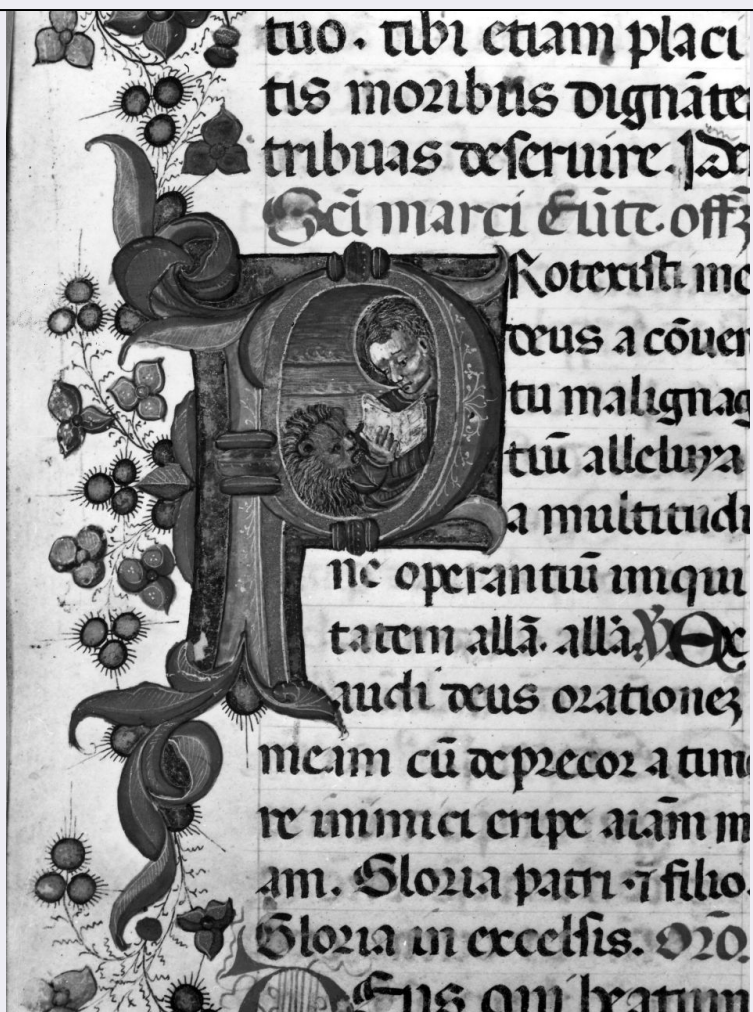 tuo. tibi etiam placi
tis moribus dignãte
tribuas deseruire. P
Sci marci Eũte. off
Rotexisti me
deus a cõuen
tu malignaɡ
tiũ alleluya
a multitudi
ne operantiũ iniqui
tatem allã. allã. Ex
audi deus orationeʒ
meam cũ deprecor a time
re inimici eripe aiam m
am. Gloria patri ⁊ filio.
Gloria in excelsis. oro.
Eus qui beatum